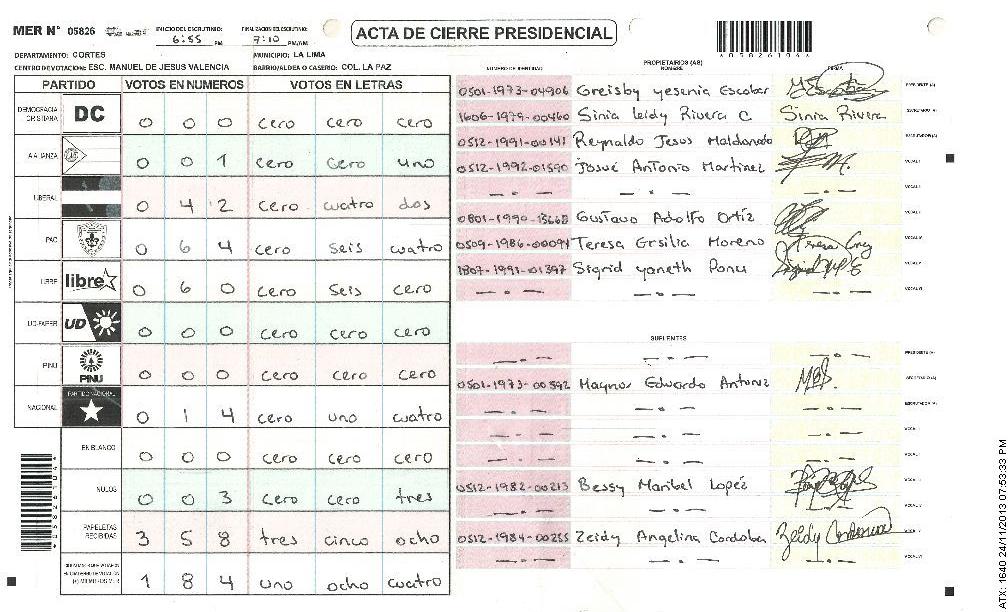 MER N° 05826 INICIO DEL ESCRUTINIO: 6:55 PM FINALIZACION DEL ESCRUTINIO: 7:10 PM/AM
ACTA DE CIERRE PRESIDENCIAL
*05826104*
DEPARTAMENTO: CORTES MUNICIPIO: LA LIMA
CENTRO DE VOTACION: ESC. MANUEL DE JESUS VALENCIA BARRIO/ALDEA O CASERIO: COL. LA PAZ
PARTIDO VOTOS EN NUMEROS VOTOS EN LETRAS
DEMOCRACIA CRISTIANA DC 0 0 0 cero cero cero
ALIANZA 0 0 1 cero cero uno
LIBERAL 0 4 2 cero cuatro dos
PAC 0 6 4 cero seis cuatro
LIBRE libre 0 6 0 cero seis cero
UD-FAPER UD 0 0 0 cero cero cero
PINU PINU 0 0 0 cero cero cero
NACIONAL PARTIDO NACIONAL 0 1 4 cero uno cuatro
EN BLANCO 0 0 0 cero cero cero
NULOS 0 0 3 cero cero tres
PAPELETAS RECIBIDAS 3 5 8 tres cinco ocho
1 8 4 uno ocho cuatro
NUMERO DE IDENTIDAD PROPIETARIOS (AS) NOMBRE FIRMA
0501-1973-04906 Greisby yesenia Escobar PRESIDENTE (A)
1606-1979-00460 Sinia leidy Rivera C Sinia Rivera SECRETARIO (A)
0512-1991-00141 Reynaldo Jesus Maldonado ESCRUTADOR (A)
0512-1992-01590 Josué Antonio Martinez VOCAL I
— . — — . — — . — VOCAL II
0801-1990-13668 Gustavo Adolfo Ortiz VOCAL III
0509-1986-00094 Teresa Ersilia Moreno VOCAL IV
1807-1991-01397 Sigrid yaneth Ponu VOCAL V
— . — — . — — . — VOCAL VI
SUPLENTES
— . — — . — — . — PRESIDENTE (A)
0501-1973-00592 Maynor Eduardo Antunez SECRETARIO (A)
— . — — . — — . — ESCRUTADOR (A)
— . — — . — — . — VOCAL I
— . — — . — — . — VOCAL II
0512-1982-00213 Bessy Maribel Lopéz VOCAL III
— . — — . — — . — VOCAL IV
0512-1984-00255 Zeidy Angelina Cordoba VOCAL V
— . — — . — — . — VOCAL VI
ATX: 1640 24/11/2013 07:53:33 PM